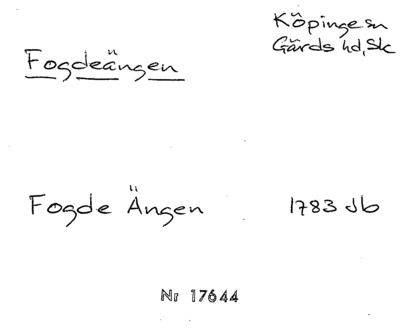 Köpinge sn
Gärds hd, Sk
Fogdeängen
Fogde Ängen 1783 Jb
Nr 17644